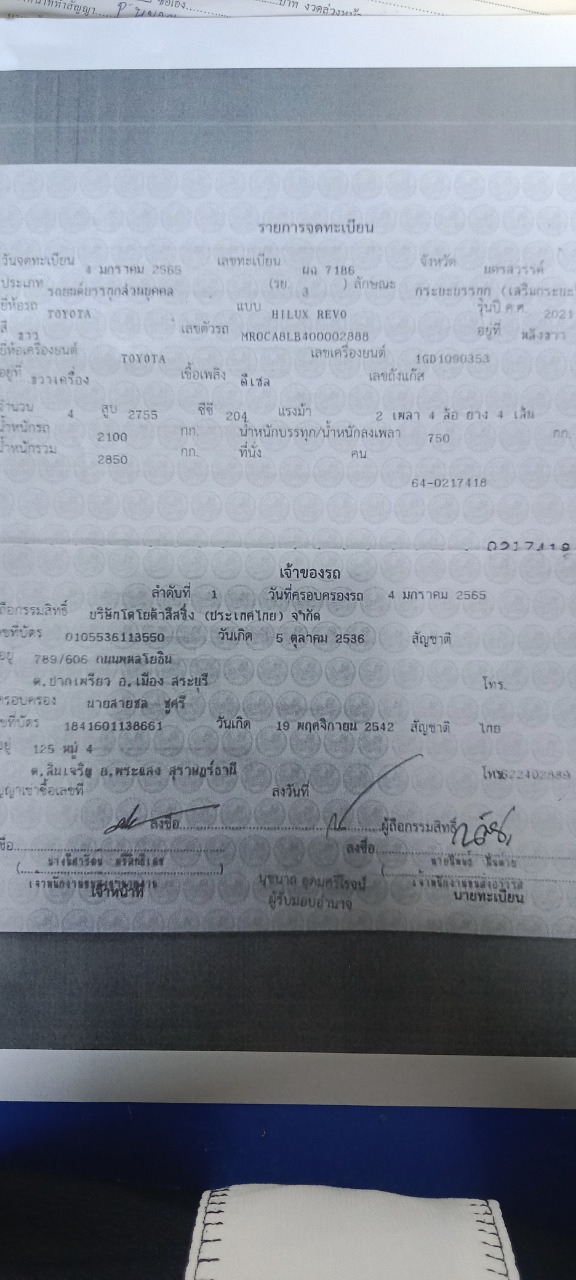 บาท งวดล่วงหน้า
รายการจดทะเบียน
วันจดทะเบียน 4 มกราคม 2565 เลขทะเบียน ผฉ 7186 จังหวัด นครสวรรค์
ประเภท รถยนต์บรรทุกส่วนบุคคล (รย. 3 ) ลักษณะ กระบะบรรทุก (เสริมกระบะ
ยี่ห้อรถ TOYOTA แบบ HILUX REVO รุ่นปี ค.ศ. 2021
สี ขาว เลขตัวรถ MR0CA8LB400002888 อยู่ที่ หลังขวา
ยี่ห้อเครื่องยนต์ TOYOTA เลขเครื่องยนต์ 1GD1090353
อยู่ที่ ขวาเครื่อง เชื้อเพลิง ดีเซล เลขถังแก๊ส
จำนวน 4 สูบ 2755 ซีซี 204 แรงม้า 2 เพลา 4 ล้อ ยาง 4 เส้น
น้ำหนักรถ 2100 กก. น้ำหนักบรรทุก/น้ำหนักลงเพลา 750 กก.
น้ำหนักรวม 2850 กก. ที่นั่ง คน
64-0217418
0217418
เจ้าของรถ
ลำดับที่ 1 วันที่ครอบครองรถ 4 มกราคม 2565
ถือกรรมสิทธิ์ บริษัทโตโยต้าลีสซิ่ง (ประเทศไทย) จำกัด
เลขที่บัตร 0105536113550 วันเกิด 5 ตุลาคม 2536 สัญชาติ
อยู่ 789/606 ถนนพหลโยธิน
ต.ปากเพรียว อ.เมือง สระบุรี โทร.
ครอบครอง นายสายชล ชูศรี
เลขที่บัตร 1841601138661 วันเกิด 19 พฤศจิกายน 2542 สัญชาติ ไทย
อยู่ 125 หมู่ 4
ต.สินเจริญ อ.พระแสง สุราษฎร์ธานี
สัญญาเช่าซื้อเลขที่ ลงวันที่
ลงชื่อ ผู้ถือกรรมสิทธิ์
ลงชื่อ
เจ้าหน้าที่ นุชนาถ อุดมศรีโรจน์ นายทะเบียน
ผู้รับมอบอำนาจ